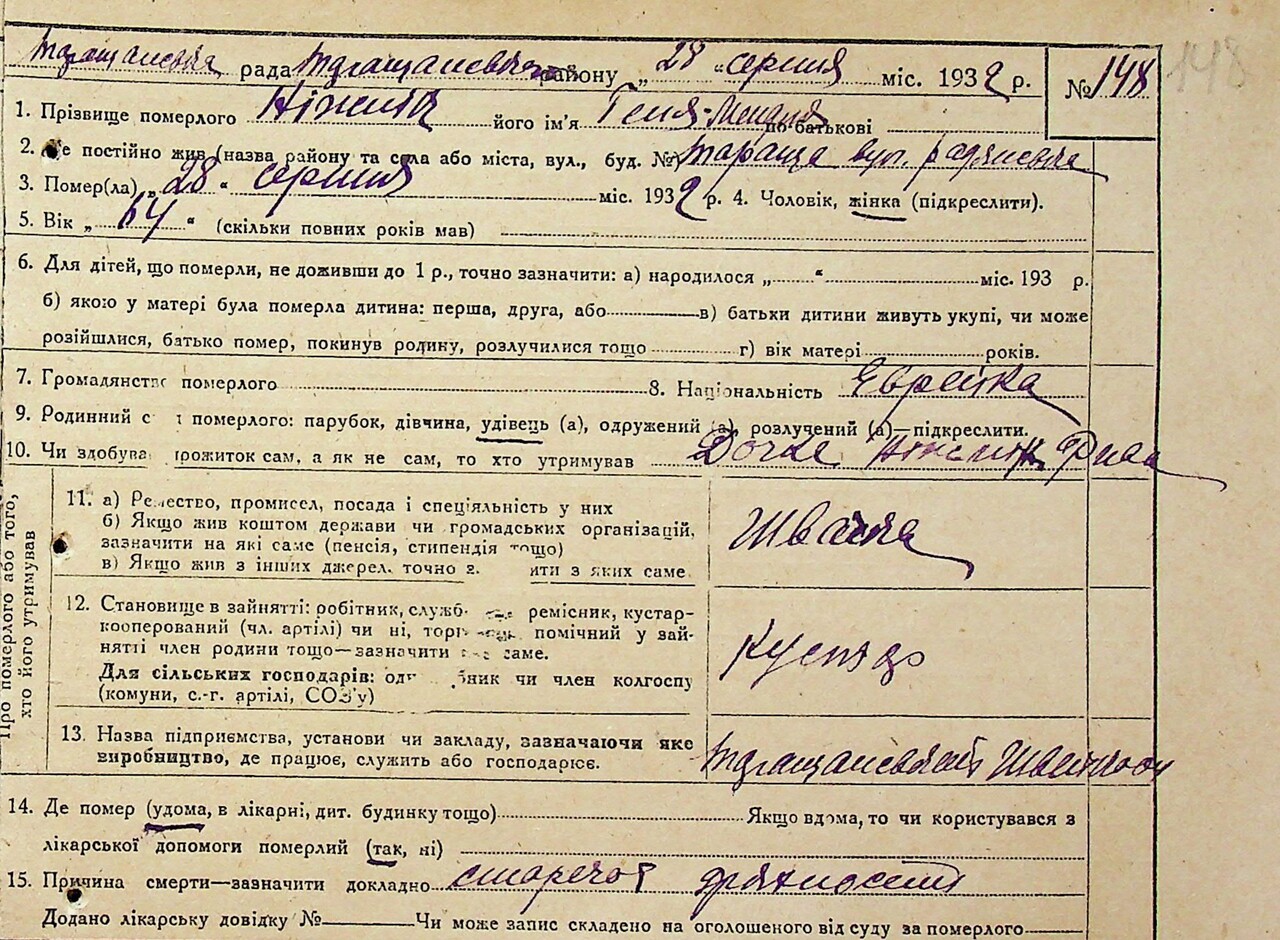 рада району „28“ серпня міс. 1932 р. № 148
148
1. Прізвище померлого його ім'я Геня- по-батькові
2. Де постійно жив (назва району та села або міста, вул., буд. №) Тараща вул. Радянська
3. Помер(ла) „28“ серпня міс. 1932 р. 4. Чоловік, жінка (підкреслити).
5. Вік „64“ (скільки повних років мав)
6. Для дітей, що померли, не доживши до 1 р., точно зазначити: а) народилося „ “ міс. 193 р.
б) якою у матері була померла дитина: перша, друга, або в) батьки дитини живуть укупі, чи може
розійшлися, батько помер, покинув родину, розлучилися тощо г) вік матері років.
7. Громадянство померлого 8. Національність Єврейка
9. Родинний с померлого: парубок, дівчина, удівець (а), одружений (а), розлучений (а)—підкреслити.
10. Чи здобува прожиток сам, а як не сам, то хто утримував Дочка
Про померлого або того,
хто його утримував
11. а) Ремество, промисел, посада і спеціяльність у них
б) Якщо жив коштом держави чи громадських організацій,
зазначити на які саме (пенсія, стипендія тощо)
в) Якщо жив з інших джерел, точно з ити з яких саме.
Швачка
12. Становище в зайнятті: робітник, служб ремісник, кустар-
кооперований (чл. артілі) чи ні, торг помічний у зай-
нятті член родини тощо—зазначити саме.
Для сільських господарів: од бник чи член колгоспу
(комуни, с.-г. артілі, СОЗ'у)
13. Назва підприємства, установи чи закладу, зазначаючи яке
виробництво, де працює, служить або господарює.
14. Де помер (удома, в лікарні, дит. будинку тощо) Якщо вдома, то чи користувався з
лікарської допомоги померлий (так, ні)
15. Причина смерти—зазначити докладно старечої дряхлости
Додано лікарську довідку № Чи може запис складено на оголошеного від суду за померлого